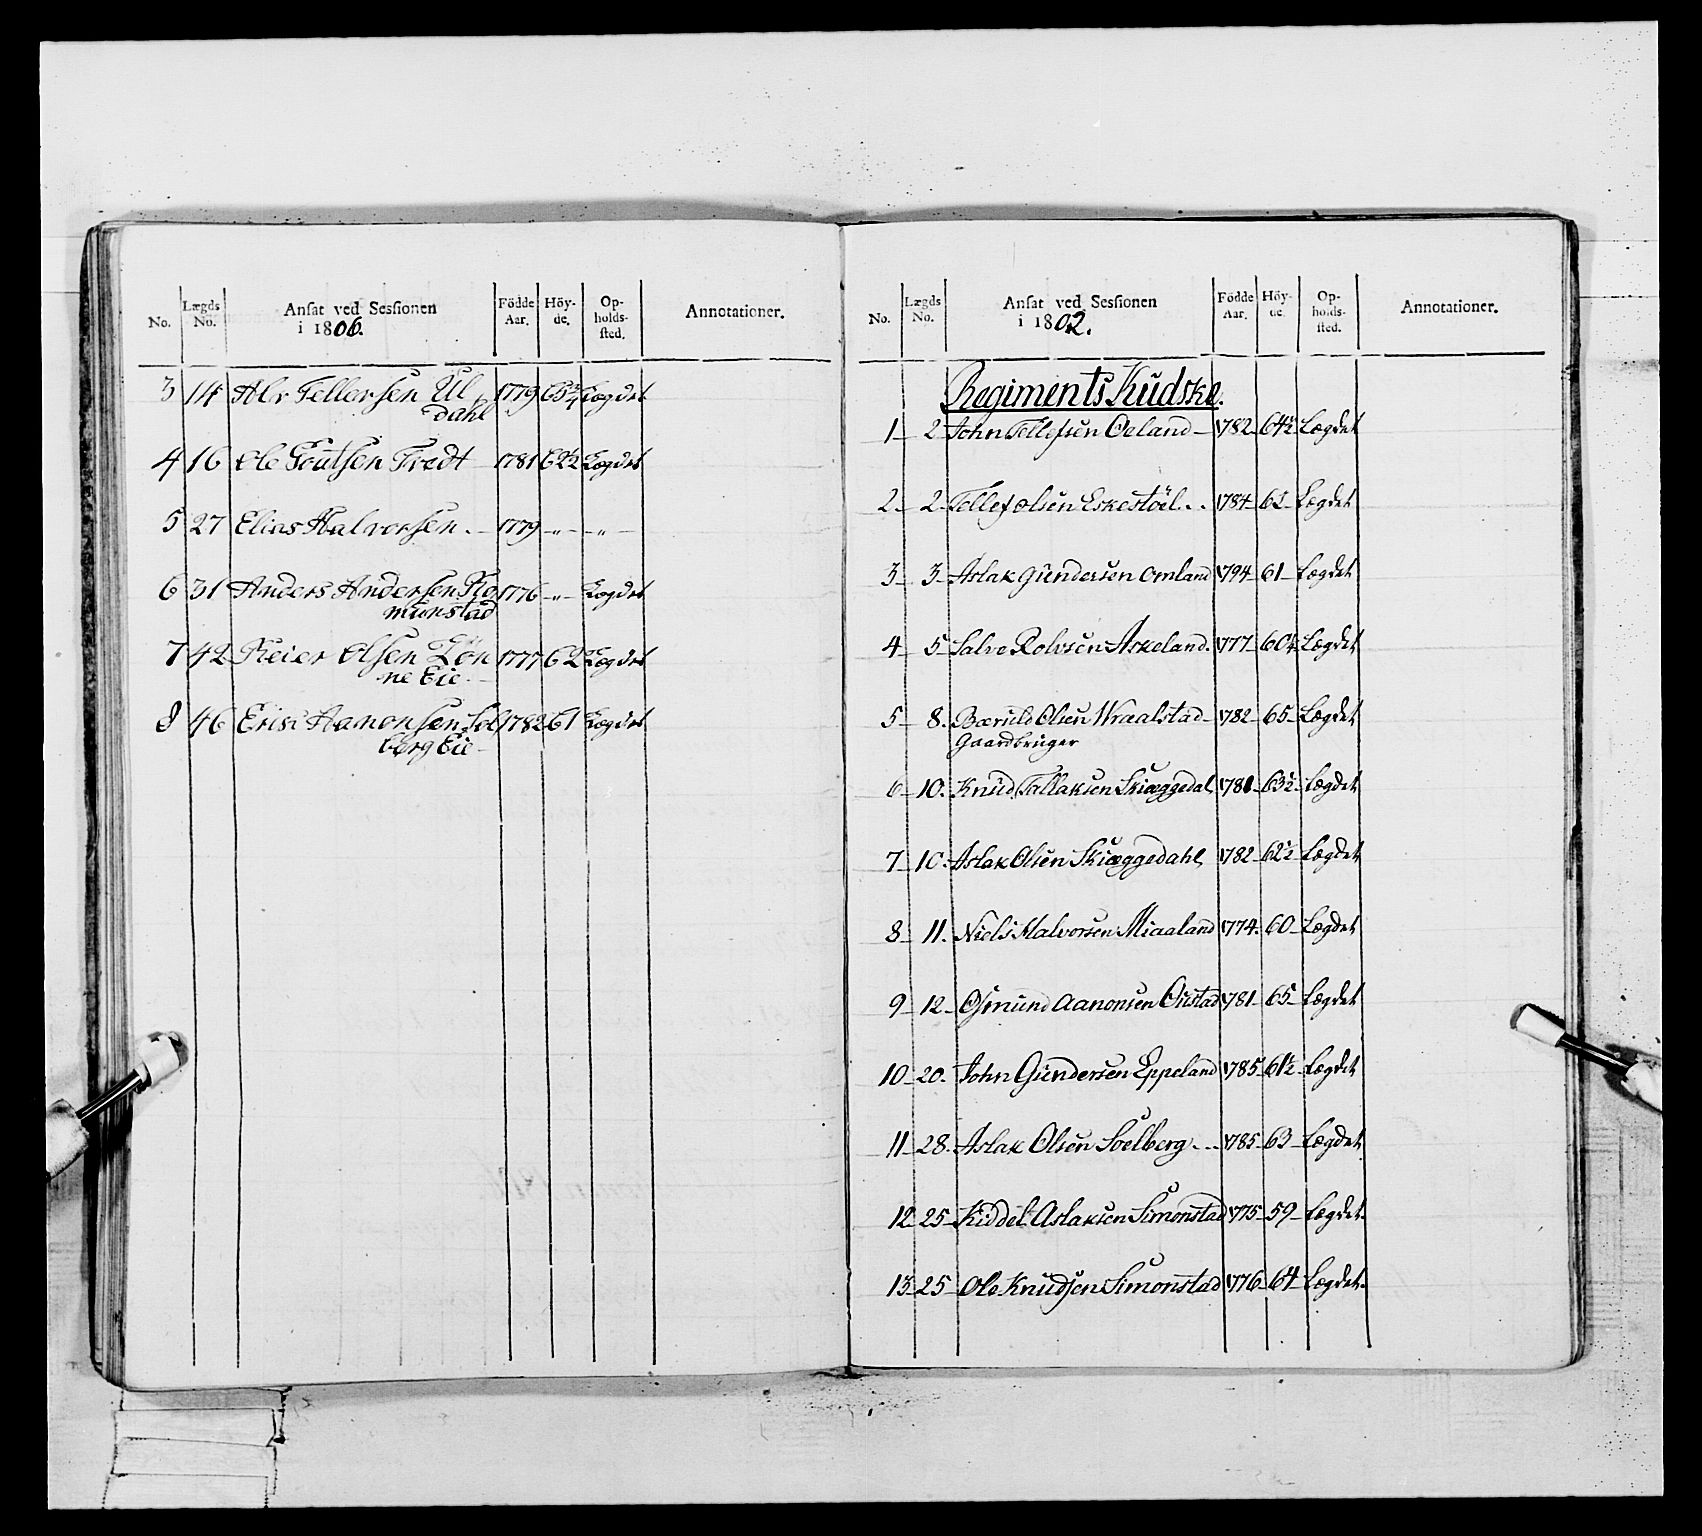 No. Lægds No. Ansat ved Sessionen i 1806. Födde Aar. Höy-de. Op-holds-sted. Annotationer.
3 14 Alv Tellefsen Ul 1779 65¾ Lægdet
dahl
4 16 Ole Goutsen Tvedt 1781 62½ Lægdet
5 27 Elias Halvorsen. – 1779 –„– –„–
6 31 Anders Andersen 1776 –„– Lægdet
munstad
7 42 Reier Olsen Løn 1777 62 Lægdet
ne Eie.
8 46 Erik Aanonsen Sol 1782 61 Lægdet
berg Eie –
No. Lægds No. Ansat ved Sessionen i 1802. Födde Aar. Höy-de. Op-holds-sted. Annotationer.
Regiments Kudske.
1– 2 John Tellefsen Øeland – 1782 64½ Lægdet
2– 2– Tellef Olsen Eskestøel. . 1784– 63– Lægdet
3– 3– Aslak Gundersen Omland 1794 61– Lægdet
4– 5– Salve Rolvsen Askeland. 1777– 60¼ Lægdet
5– 8. Bæruld Olsen Wraalstad– 1782– 65– Lægdet
Gaardbruger
6– 10. Knud Tallaksen Skiæggedal 1781– 63½– Lægdet
7– 10. Aslak Olsen Skiæggedahl 1782– 62½ Lægdet
8– 11. Niels Halvorsen Miaaland 1774. 60– Lægdet
9– 12– Osmund Aanonsen 1781– 65– Lægdet
10– 20. John Gundersen Eppeland 1785 61½– Lægdet
11– 28. Aslak Olsen Soelberg . . – 1785– 63– Lægdet
12 25– Kiddel Aslaksen Simonstad 1775– 59– Lægdet.
13– 25– Ole Knudsen Simonstad 1776– 64– Lægdet.